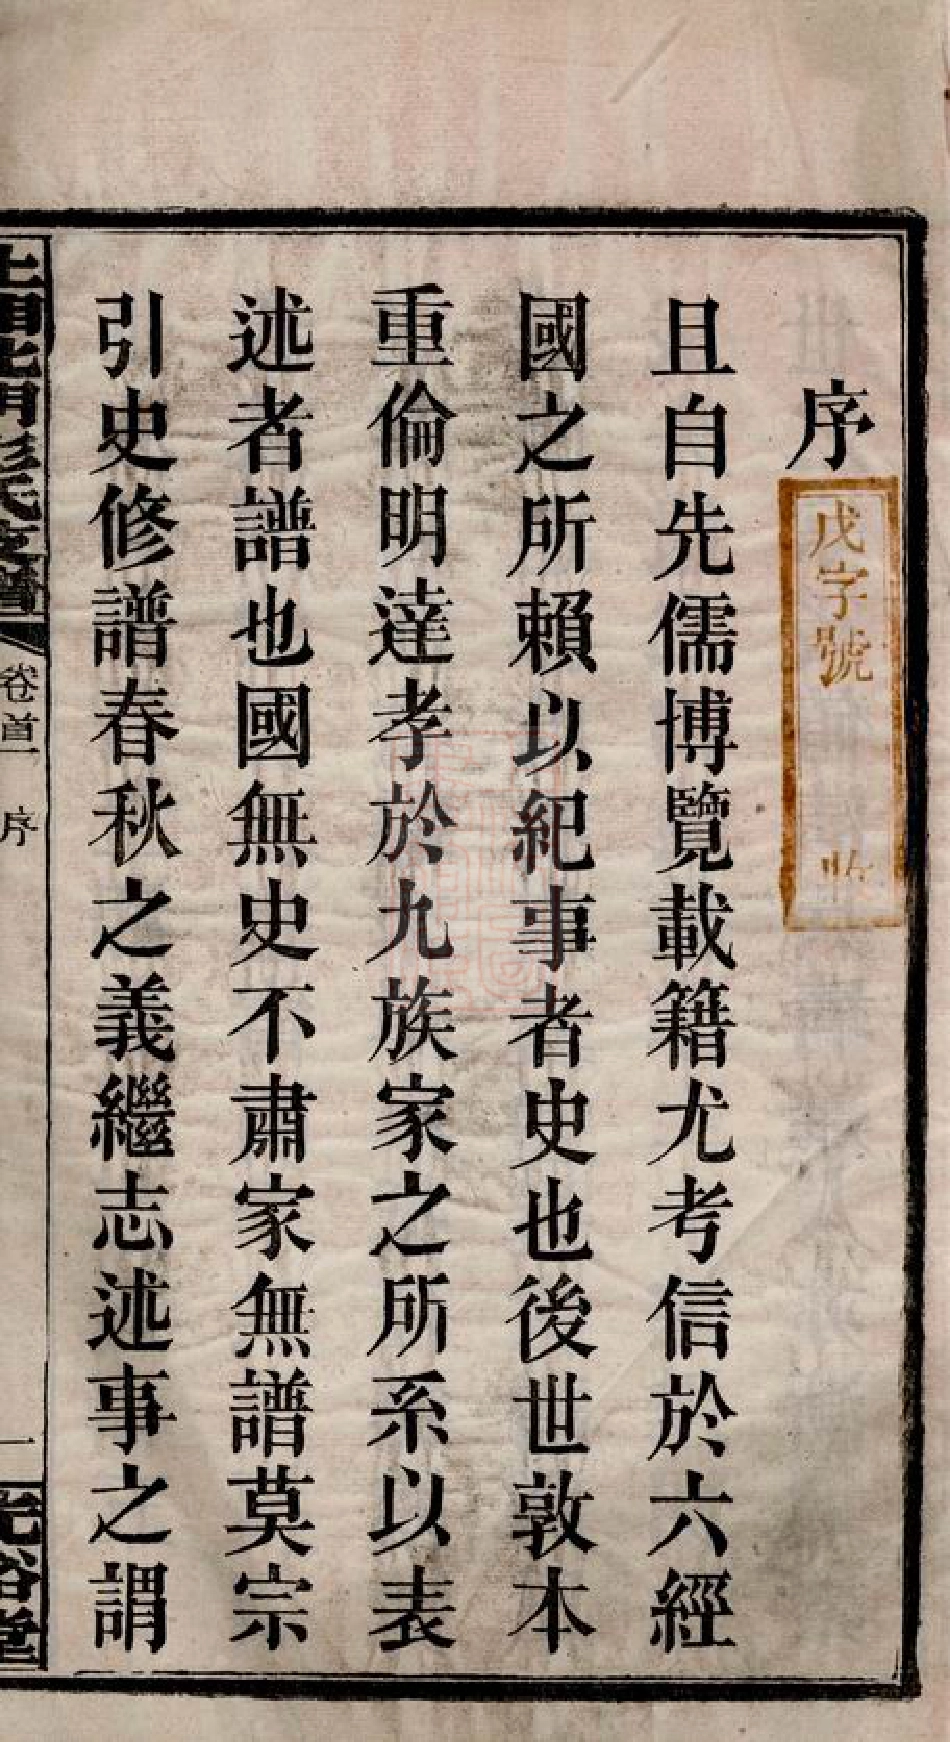 序
戊字號
收
且自先儒博覽載籍尤考信於六經
國之所賴以紀事者史也後世敦本
重倫明達孝於九族家之所系以表
述者譜也國無史不肅家無譜莫宗
引史修譜春秋之義繼志述事之謂
上湘北門彭氏支譜
卷首
序
一
光裕堂